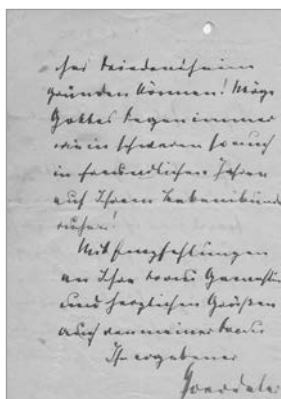 gründen können! Möge
Gottes Segen immer
wie in schweren so auch
in freundlichen Jahren
auf Ihrem Lebensbunde
ruhen!
Mit Empfehlungen
an Ihre Frau Gemahlin
und herzlichen Grüßen
auch von meiner Frau
Ihr ergebener
Goerdeler